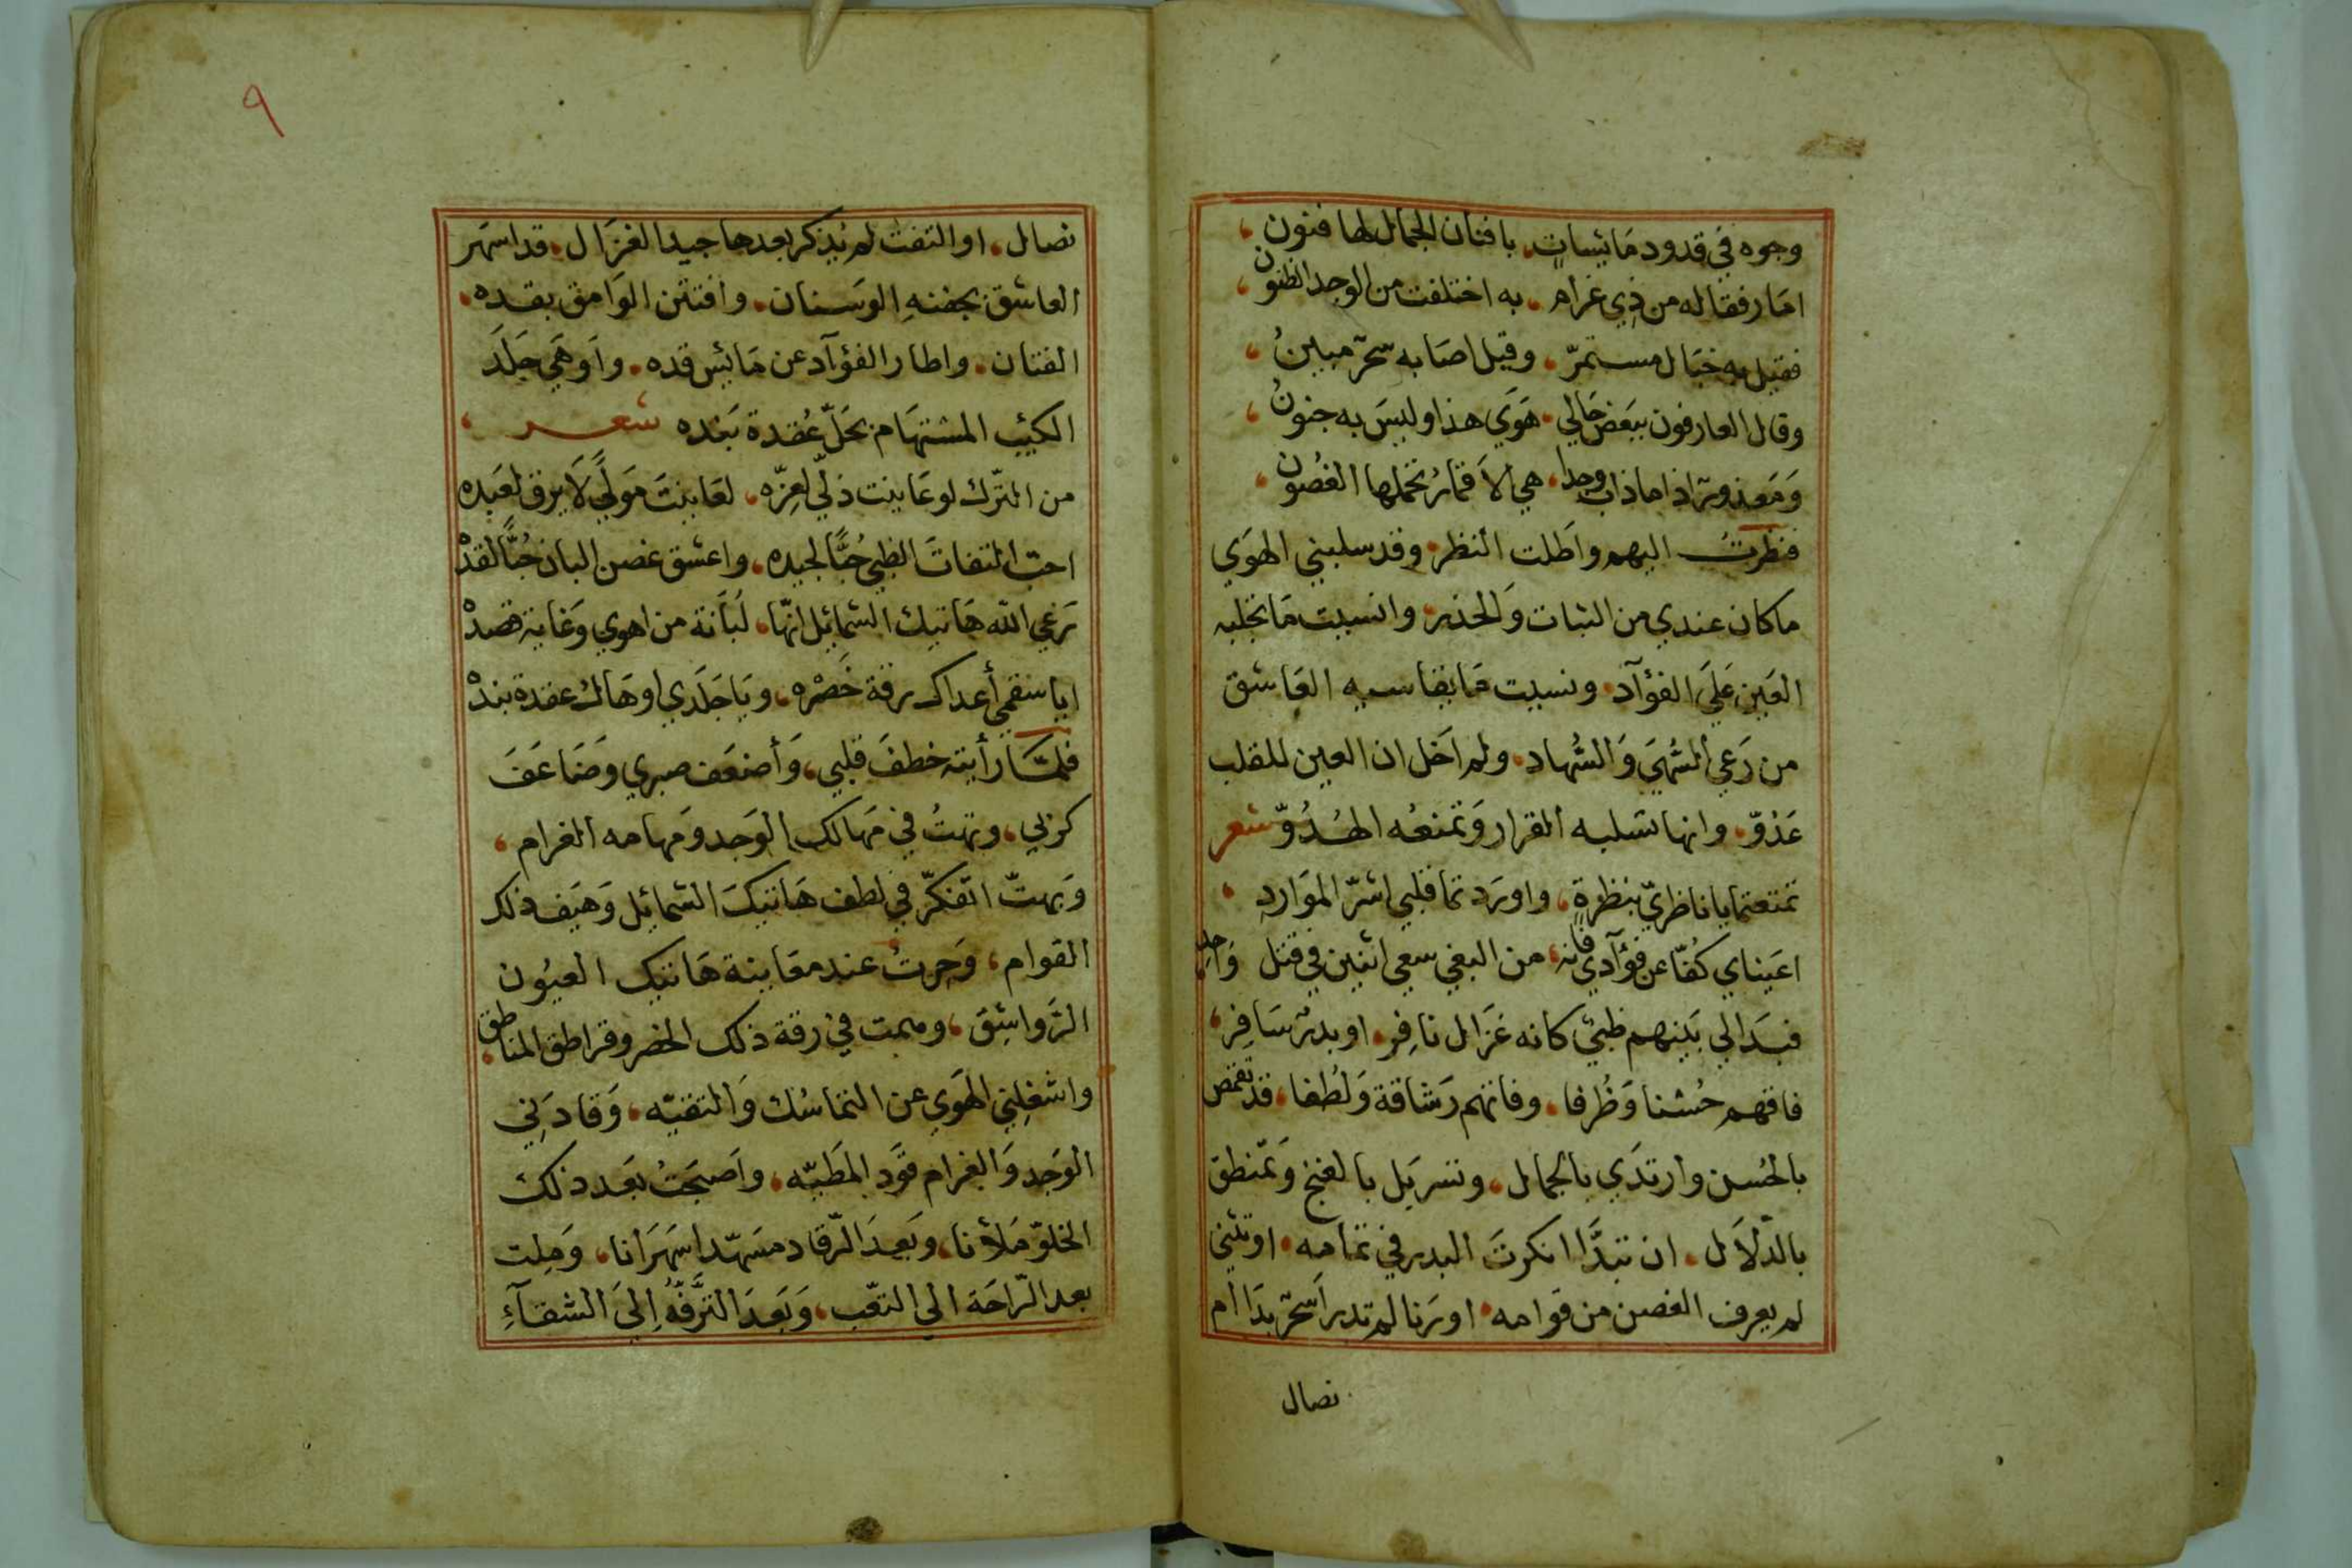 وجوه في قدود مَائِسَاتٍ، بافنان الجمال لها فنون،
امَا رفقا له من ذِي غرام، به اختلفت من الوجد الظنون،
فقيل به خبَال مستمرّ، وقيل اصَابه سحرٌ مبينُ،
وقال العارفون ببَعض حَالي، هَوَي هذا وليسَ به جنونُ،
وَمَعذورٌ اذا ما ذاب وجدا، هي الاَقمارُ تحملها الغصُون،
فنظرتُ اليهم واطَلت النظر، وقد سلبني الهوَي
ما كان عندي من الثبات وَالحذر، وانسيت مَا تجلبه
العَين عَلَي الفؤآد، ونسيت مَا يقَاسيه العَاشق
من رَعي السُّهَي وَالسُّهاد، ولم اَخَل ان العين للقلب
عَدُوّ، وانها تسَلبه القرار وَتمنعُه الهُدُوّ شعر
تمتعتما يا ناظريّ بنظرةٍ، واورَدتما قلبي اشرّ الموَاردِ،
اعَيناي كُفّا عن فؤآدي فانه، من البغي سعي اثنين في قتل وَاحِدِ
فبَدَا لي بَينهم ظبيٌ كانه غَزَال نافِر، او بدرٌ سَافِر،
فاقهم حُسْنا وَظُرفا، وفاتهم رَشاقة وَلُطفا، قد تقمّص
بالحُسن وارتدَي بالجمال، وتسَربَل بالغنج وَتمنطق
بالدّلاَل، ان تبدَّا انكرتَ البدر في تمامه، او تثني
لم يعرف الغصن من قوَامه، او رَنا لم تدر اَسحرٌ بدَا ام
نصال
٩
نصال، او التفت لم يُذكر بعدها جيد الغزَال، قد اسهَر
العاشق بجفنهِ الوسَنان، وافتتن الوَامق بقده،
الفتان، واطار الفؤآد عن مَائِس قده، واَوهَي جَلَدَ
الكئيب المستهَام بحَلّ عُقدة بَنده شعر،
من الترك لو عَاينت ذلّي لعِزّه، لعَاينتَ مَوليً لاَ يرق لعَبده
احبّ التفاتَ الظبي حُبًّا لجيده، واعشق غصن البان حُبًّا لقدهْ
رَعَي اللّه هَاتيك الشمائل انهّا، لُبَانة من اهوي وَغاية قصدهْ
ايا سقمي أعداك رقة خَصْره، ويَا جَلَدي اوهَاك عقدة بندهْ
فلمّا رأيته خطفَ قلبي، وَأضعَف صبري وضَاعَفَ
كربي، وتهتُ في مَهالك الوَجد وَمهامه الغرام،
وَبهتّ اتفكّر في لطف هَاتيكَ الشمائِل وَهَيَف ذلك
القوام، وَحِرتُ عند معَاينة هَاتيك العيُون
الرَّواشِق، وهمت في رقة ذلك الخصر وقراطق المناطق،
واشغلِني الهوَي عن التماسُك وَالتقيّه، وَقادَني
الوَجد وَالغرام قوَد المطَيّه، واَصبَحَتُ بَعد ذلك
الخلوّ مَلأنا، وبَعدَ الرّقاد مسَهّدا سهَرَانا، وَمِلت
بعد الرّاحَة الي التعَب، وَبَعدَ التَّرفُّهِ اِليَ الشقآءِ